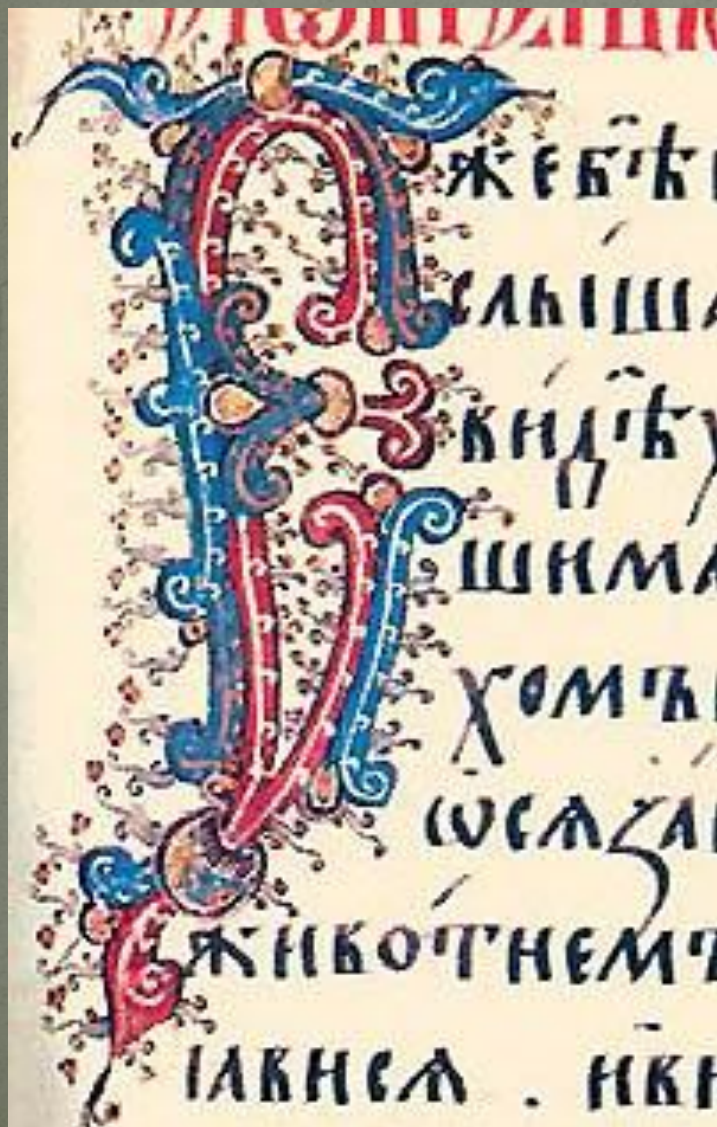 жебѣ
слыша
видѣх
шима
хомъ
ѡсѧза
животнемъ
ꙗвисѧ . и҆ви